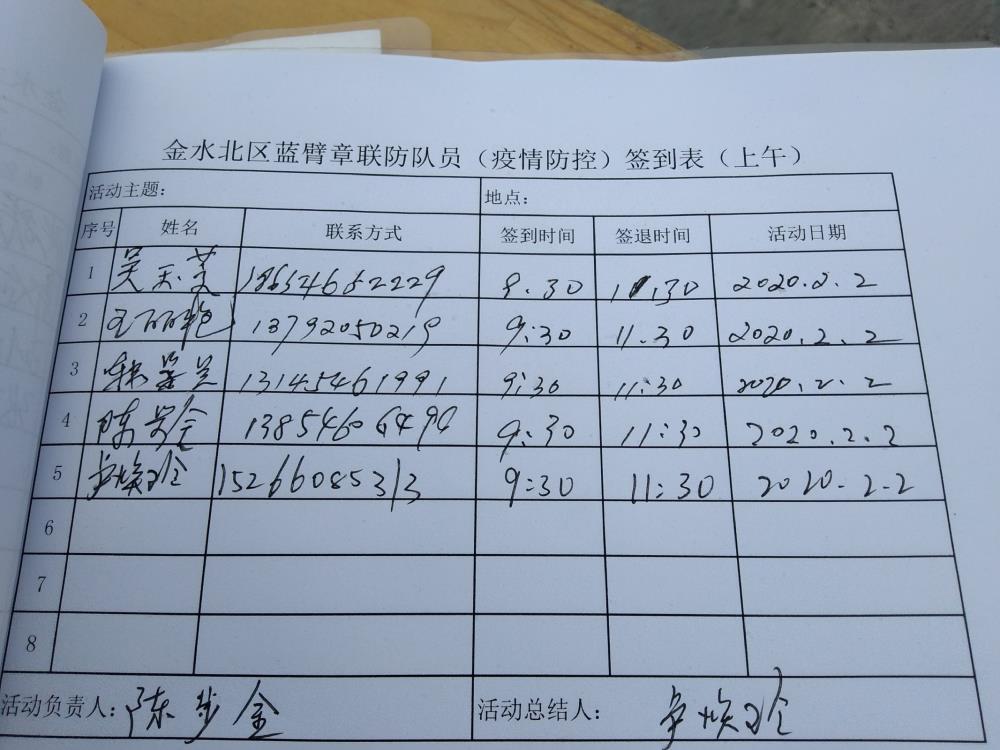 金水北区蓝臂章联防队员（疫情防控）签到表（上午）
活动主题： 地点：
序号 姓名 联系方式 签到时间 签退时间 活动日期
1 吴玉芝 9.30 11:30 2020.2.2
2 王丽艳 13792050219 9:30 11.30 2020.2.2
3 13145461991 9:30 11:30 2020.2.2
4 陈 9:30 11:30 2020.2.2
5 15266085313 9:30 11:30 2020.2.2
6
7
8
活动负责人：陈步金 活动总结人：